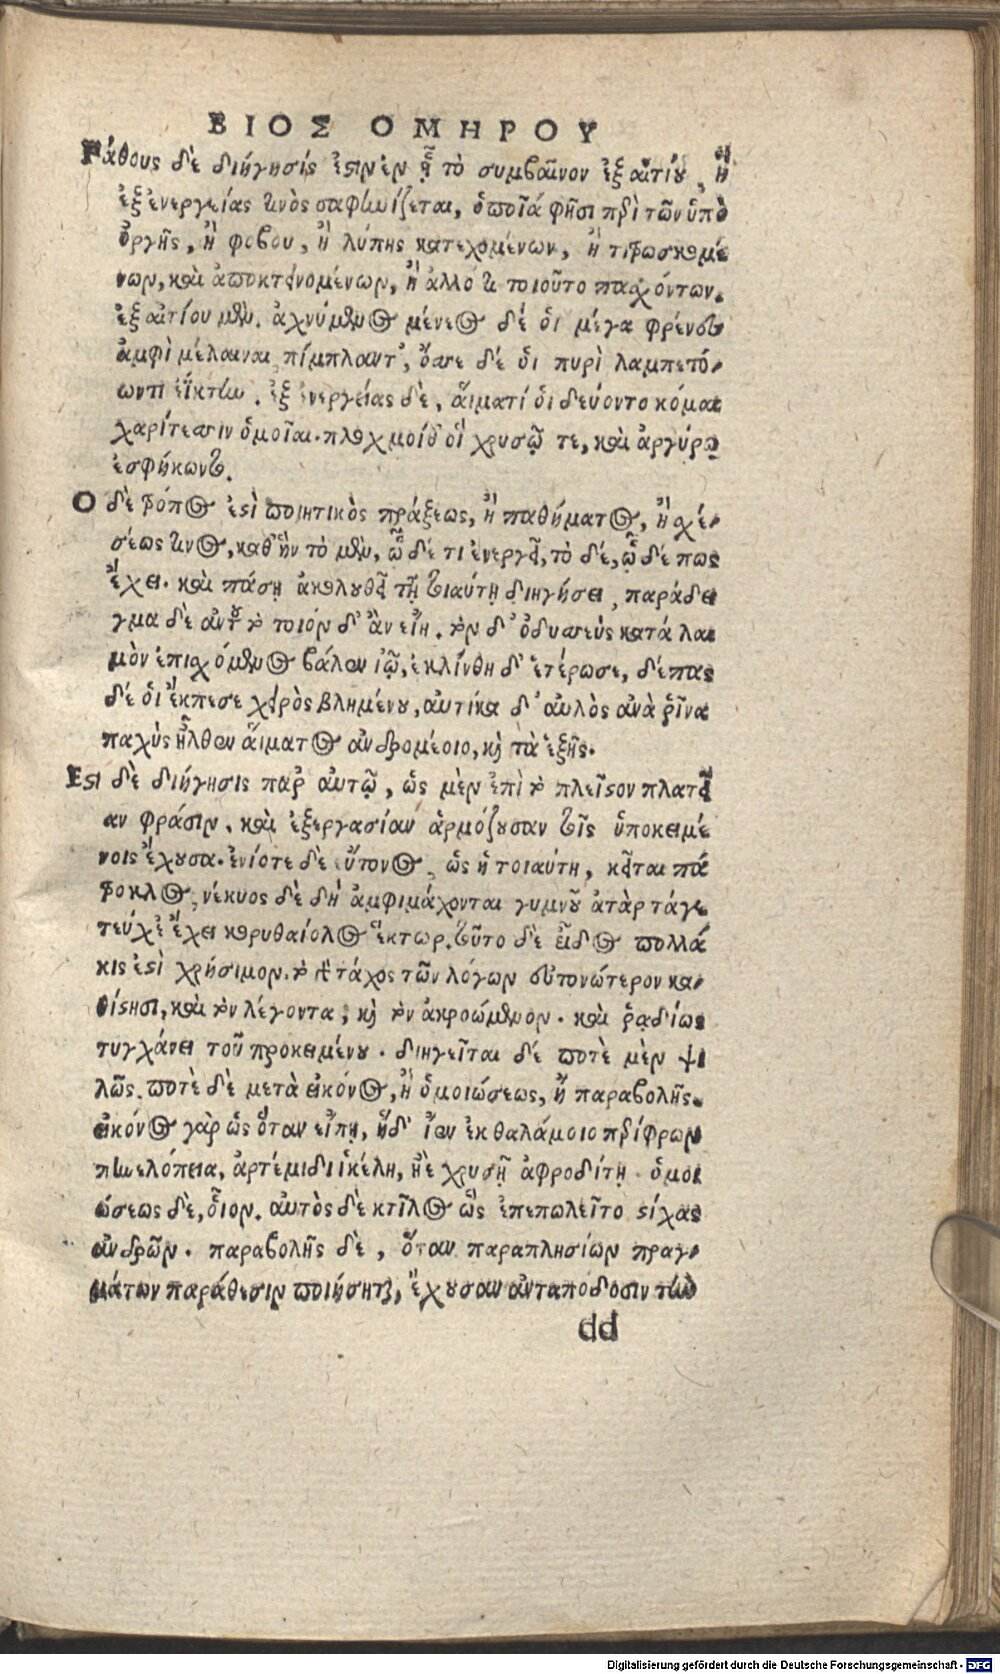 ΒΙΟΣ ΟΜΗΡΟΥ
Πάθους δὲ διήγησίς ἐστιν ἐν ᾗ τὸ συμβαῖνον ἐξ αἰτίου, ἢ
ἐξ ἐνεργείας τινὸς σαφηνίζεται, ὁποῖά φησι περὶ τῶν ὑπὸ
ὀργῆς, ἢ φόβου, ἢ λύπης κατεχομένων, ἢ τιτρωσκομέ
νων, καὶ ἀποκτεινομένων, ἢ ἀλλό τι τοιοῦτο παχόντων.
ἐξ αἰτίου μὲν. ἀχνύμενος μένεος δέ ὁι μέγα φρένες
ἀμφὶ μέλαιναι, πίμπλαντ', ὄσσε δέ ὁι πυρὶ λαμπετό-
ωντι ἐΐκτην. ἐξ ἐνεργείας δὲ, ἅιματί ὁι δεύοντο κόμαι
χαρίτεσσιν ὁμοῖαι. πλοχμοίθ' οἳ χρυσῷ τε, καὶ ἀργύρῳ
ἐσφήκωντο.
Ο δὲ τρόπος ἐστὶ ποιητικὸς πράξεως, ἢ παθήματος, ἢ χέ-
σέως τινος, καθ' ἣν τὸ μὲν, ὧδέ τι ἐνεργεῖ, τὸ δὲ, ὧδέ πως
ἔχει. καὶ πάσῃ ἀκολουθεῖ τῇ τοιαύτῃ διηγήσει, παράδει
γμα δὲ αὐτοῦ τὸ τοιόν δ' ἂν εἴη. τὸν δ' ὀδυσσεύς κατὰ λαι
μὸν ἐπισχόμενος βάλεν ἰῷ, ἐκλίνθη δ' ἑτέρωσε, δέπας
δέ ὁι ἔκπεσε χειρὸς βλημένου, αὐτίκα δ' αὐλὸς ἀνὰ ῥῖνα
παχὺς ἦλθεν ἅιματος ἀνδρομέοιο, καὶ τὰ ἑξῆς.
Εστι δὲ διήγησις παρ' αὐτῷ, ὡς μὲν ἐπὶ τὸ πλεῖστον πλατεῖ
αν φράσιν, καὶ ἐξεργασίαν ἁρμόζουσαν τοῖς ὑποκειμέ
νοις ἔχουσα. ἐνίοτε δὲ εὔτονος, ὡς ἡ τοιαύτη, κεῖται πά
τροκλος, νέκυος δὲ δὴ ἀμφιμάχονται γυμνοῦ ἀτὰρ τάγε
τεύχε' ἔχει κορυθαίολος ἕκτωρ. τοῦτο δὲ εἶδος πολλά
κις ἐστὶ χρήσιμον. τὸ γὰρ τάχος τῶν λόγων εὐτονώτερον κα-
θίστησι, καὶ τὸν λέγοντα, καὶ τὸν ἀκροώμενον. καὶ ῥᾳδίως
τυγχάνει τοῦ προκειμένου. διηγεῖται δέ ποτὲ μὲν ψι
λῶς, ποτὲ δὲ μετὰ εἰκόνος, ἢ ὁμοιώσεως, ἢ παραβολῆς.
εἰκόνος γὰρ ὡς ὅταν εἴπῃ, ἥδ' ἴεν ἐκ θαλάμοιο περίφρων
πηνελόπεια, ἀρτέμιδι ἰκέλη, ἠὲ χρυσῇ ἀφροδίτῃ. ὁμοι
ώσεως δὲ, ὅιον. αὐτὸς δὲ κτίλος ὣς ἐπεπωλεῖτο στίχας
ἀνδρῶν. παραβολῆς δὲ, ὅταν παραπλησίων πραγ-
μάτων παράθεσιν ποιήσηται, ἔχουσαν ἀνταπόδοσιν τὴν
dd
Digitalisierung gefördert durch die Deutsche Forschungsgemeinschaft - DFG